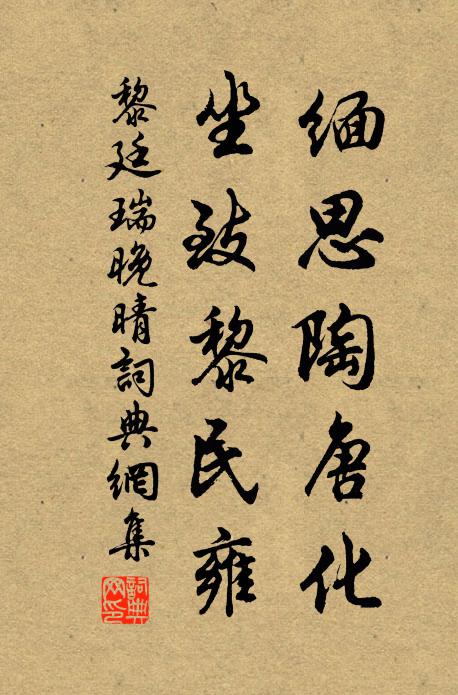 緬思陶唐化
坐致黎民雍
黎廷瑞晚晴詞典網集
詞典
网印